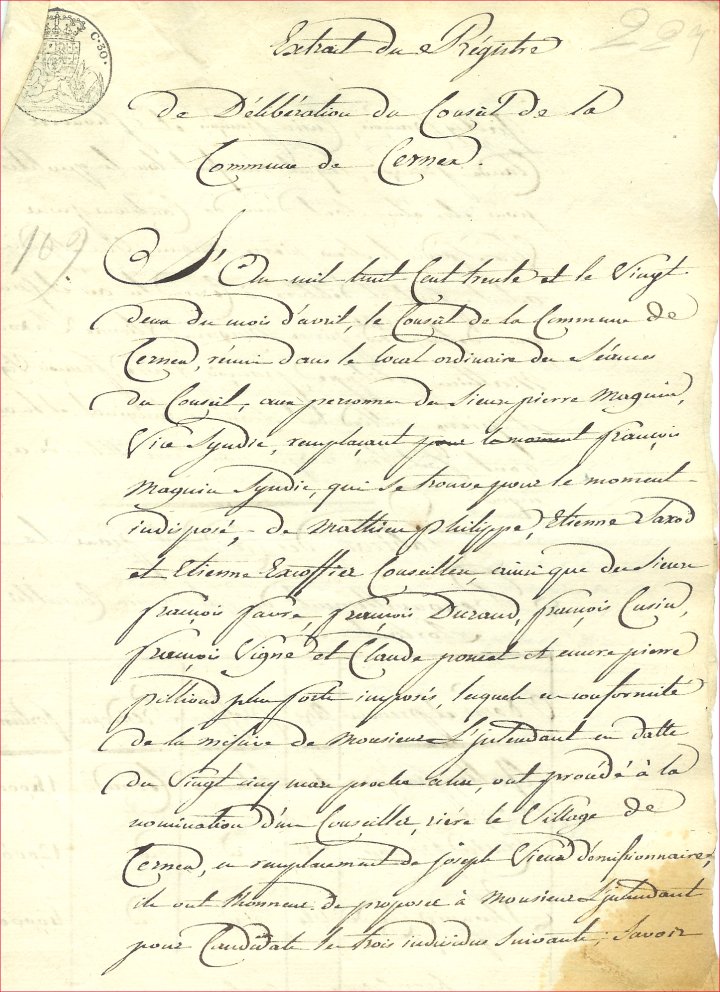 C. 30.
223
Extrait du Régistre
de Délibération du Conseil de la
Commune de Cernex.
109
L'An mil huit Cent trente et le Vingt
deux du mois d'avril, le Conseil de la Commune de
Cernex, réuni dans le local ordinaire des Séances
du Conseil, aux personnes des Sieurs pierre Magnin,
Vice Syndic, remplaçant pour le moment françois
Magnin Syndic, qui se trouve pour le moment
indisposé, de Mathieu Philippe, Etienne Taxod
et Etienne Excoffier Conseillers, ainsi que des Sieurs
françois favre, françois Durand, françois Cusin,
françois Vigne et Claude poncet et encore pierre
pilliond plus forts imposés, lesquels en conformité
de la missive de Monsieur L'jntendant en datte
du Vingt cinq mars proche échu, ont procédé à la
nomination d'un Conseiller, rière le Village de
Cernex, en remplacement de joseph Vieux démissionnaire,
ils ont l'honneur de proposer à Monsieur L'jntendant
pour Candidats les trois individus Suivants; Savoir